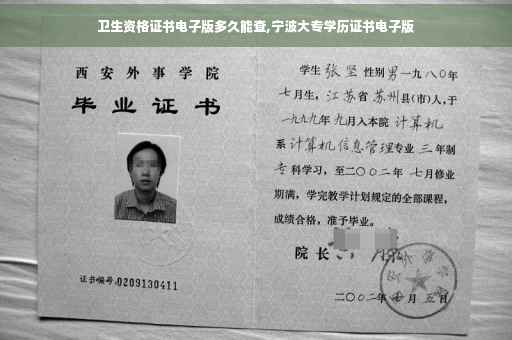 卫生资格证书电子版多久能查,宁波大专学历证书电子版
西安外事学院
毕业证书
证书编号:0209130411
学生 张坚 性别男一九八〇年
七月生，江苏省苏州县(市)人,于
一九九九年九月入本院 计算机
系 计算机信息管理专业 三 年制
专科学习，至二〇〇二年七月修业
期满，学完教学计划规定的全部课程，
成绩合格，准予毕业。
院长
二〇〇二年 月五日